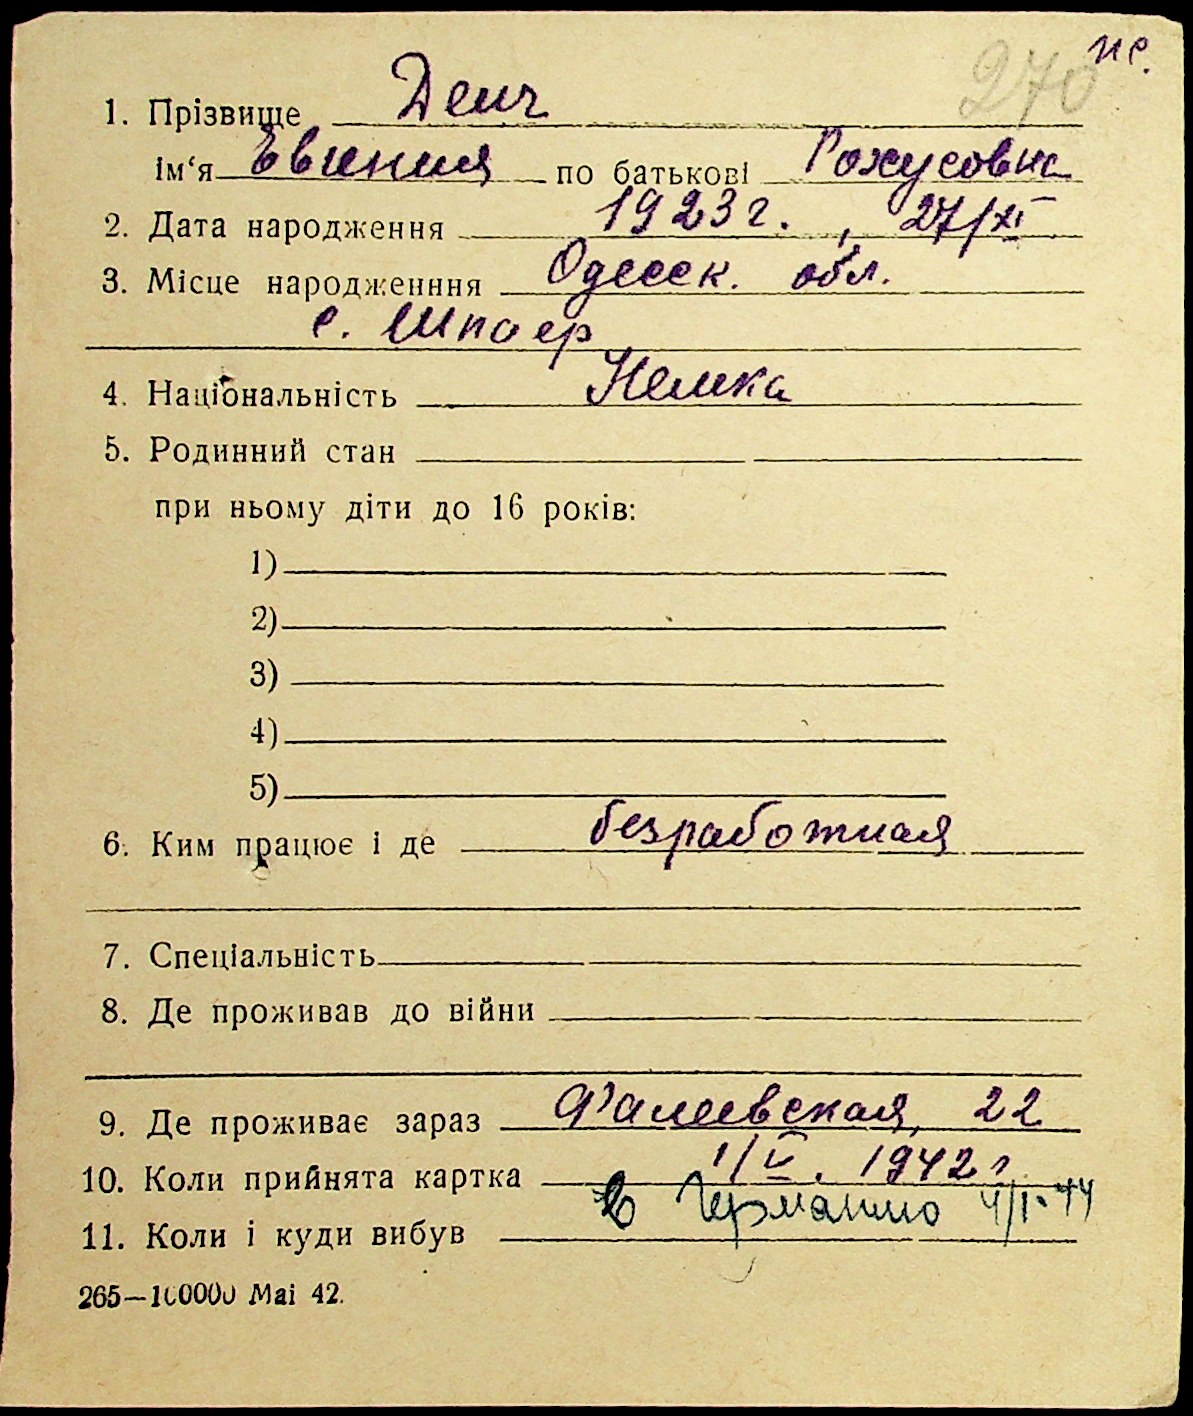 не.
270
1. Прізвище Деич
ім‘я Евгения по батькові Рохусовна
2. Дата народження 1923 г. , 27/XI
3. Місце народженння Одесск. обл.
с. Шпаер
4. Національність Немка
5. Родинний стан
при ньому діти до 16 років:
1)
2)
3)
4)
5)
6. Ким працює і де безработная
7. Спеціальність
8. Де проживав до війни
9. Де проживає зараз Фалеевская, 22
10. Коли прийнята картка 1/V. 1942 г
11. Коли і куди вибув в Германию 4/I-44
265—100000 Маі 42.